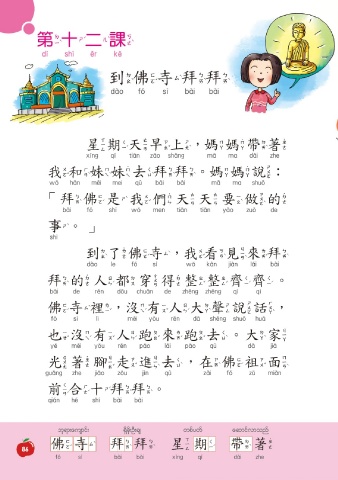 第十二課
dì shí èr kè
到佛寺拜拜
dào fó sì bài bài
星期天早上，媽媽帶著
xīng qí tiān zǎo shàng mā ma dài zhe
我和妹妹去拜拜。媽媽說：
wǒ hàn mèi mei qù bài bài mā ma shuō
「拜佛是我們天天要做的
bài fó shì wǒ men tiān tiān yào zuò de
事。」
shì
到了佛寺，我看見來拜
dào le fó sì wǒ kàn jiàn lái bài
拜的人都穿得整整齊齊。
bài de rén dōu chuān de zhěng zhěng qí qí
佛寺裡，沒有人大聲說話，
fó sì lǐ méi yǒu rén dà shēng shuō huà
也沒有人跑來跑去。大家
yě méi yǒu rén pǎo lái pǎo qù dà jiā
光著腳走進去，在佛祖面
guāng zhe jiǎo zǒu jìn qù zài fó zǔ miàn
前合十拜拜。
qián hé shí bài bài
佛寺 拜拜 星期 帶著
fó sì bài bài xīng qí dài zhe
86